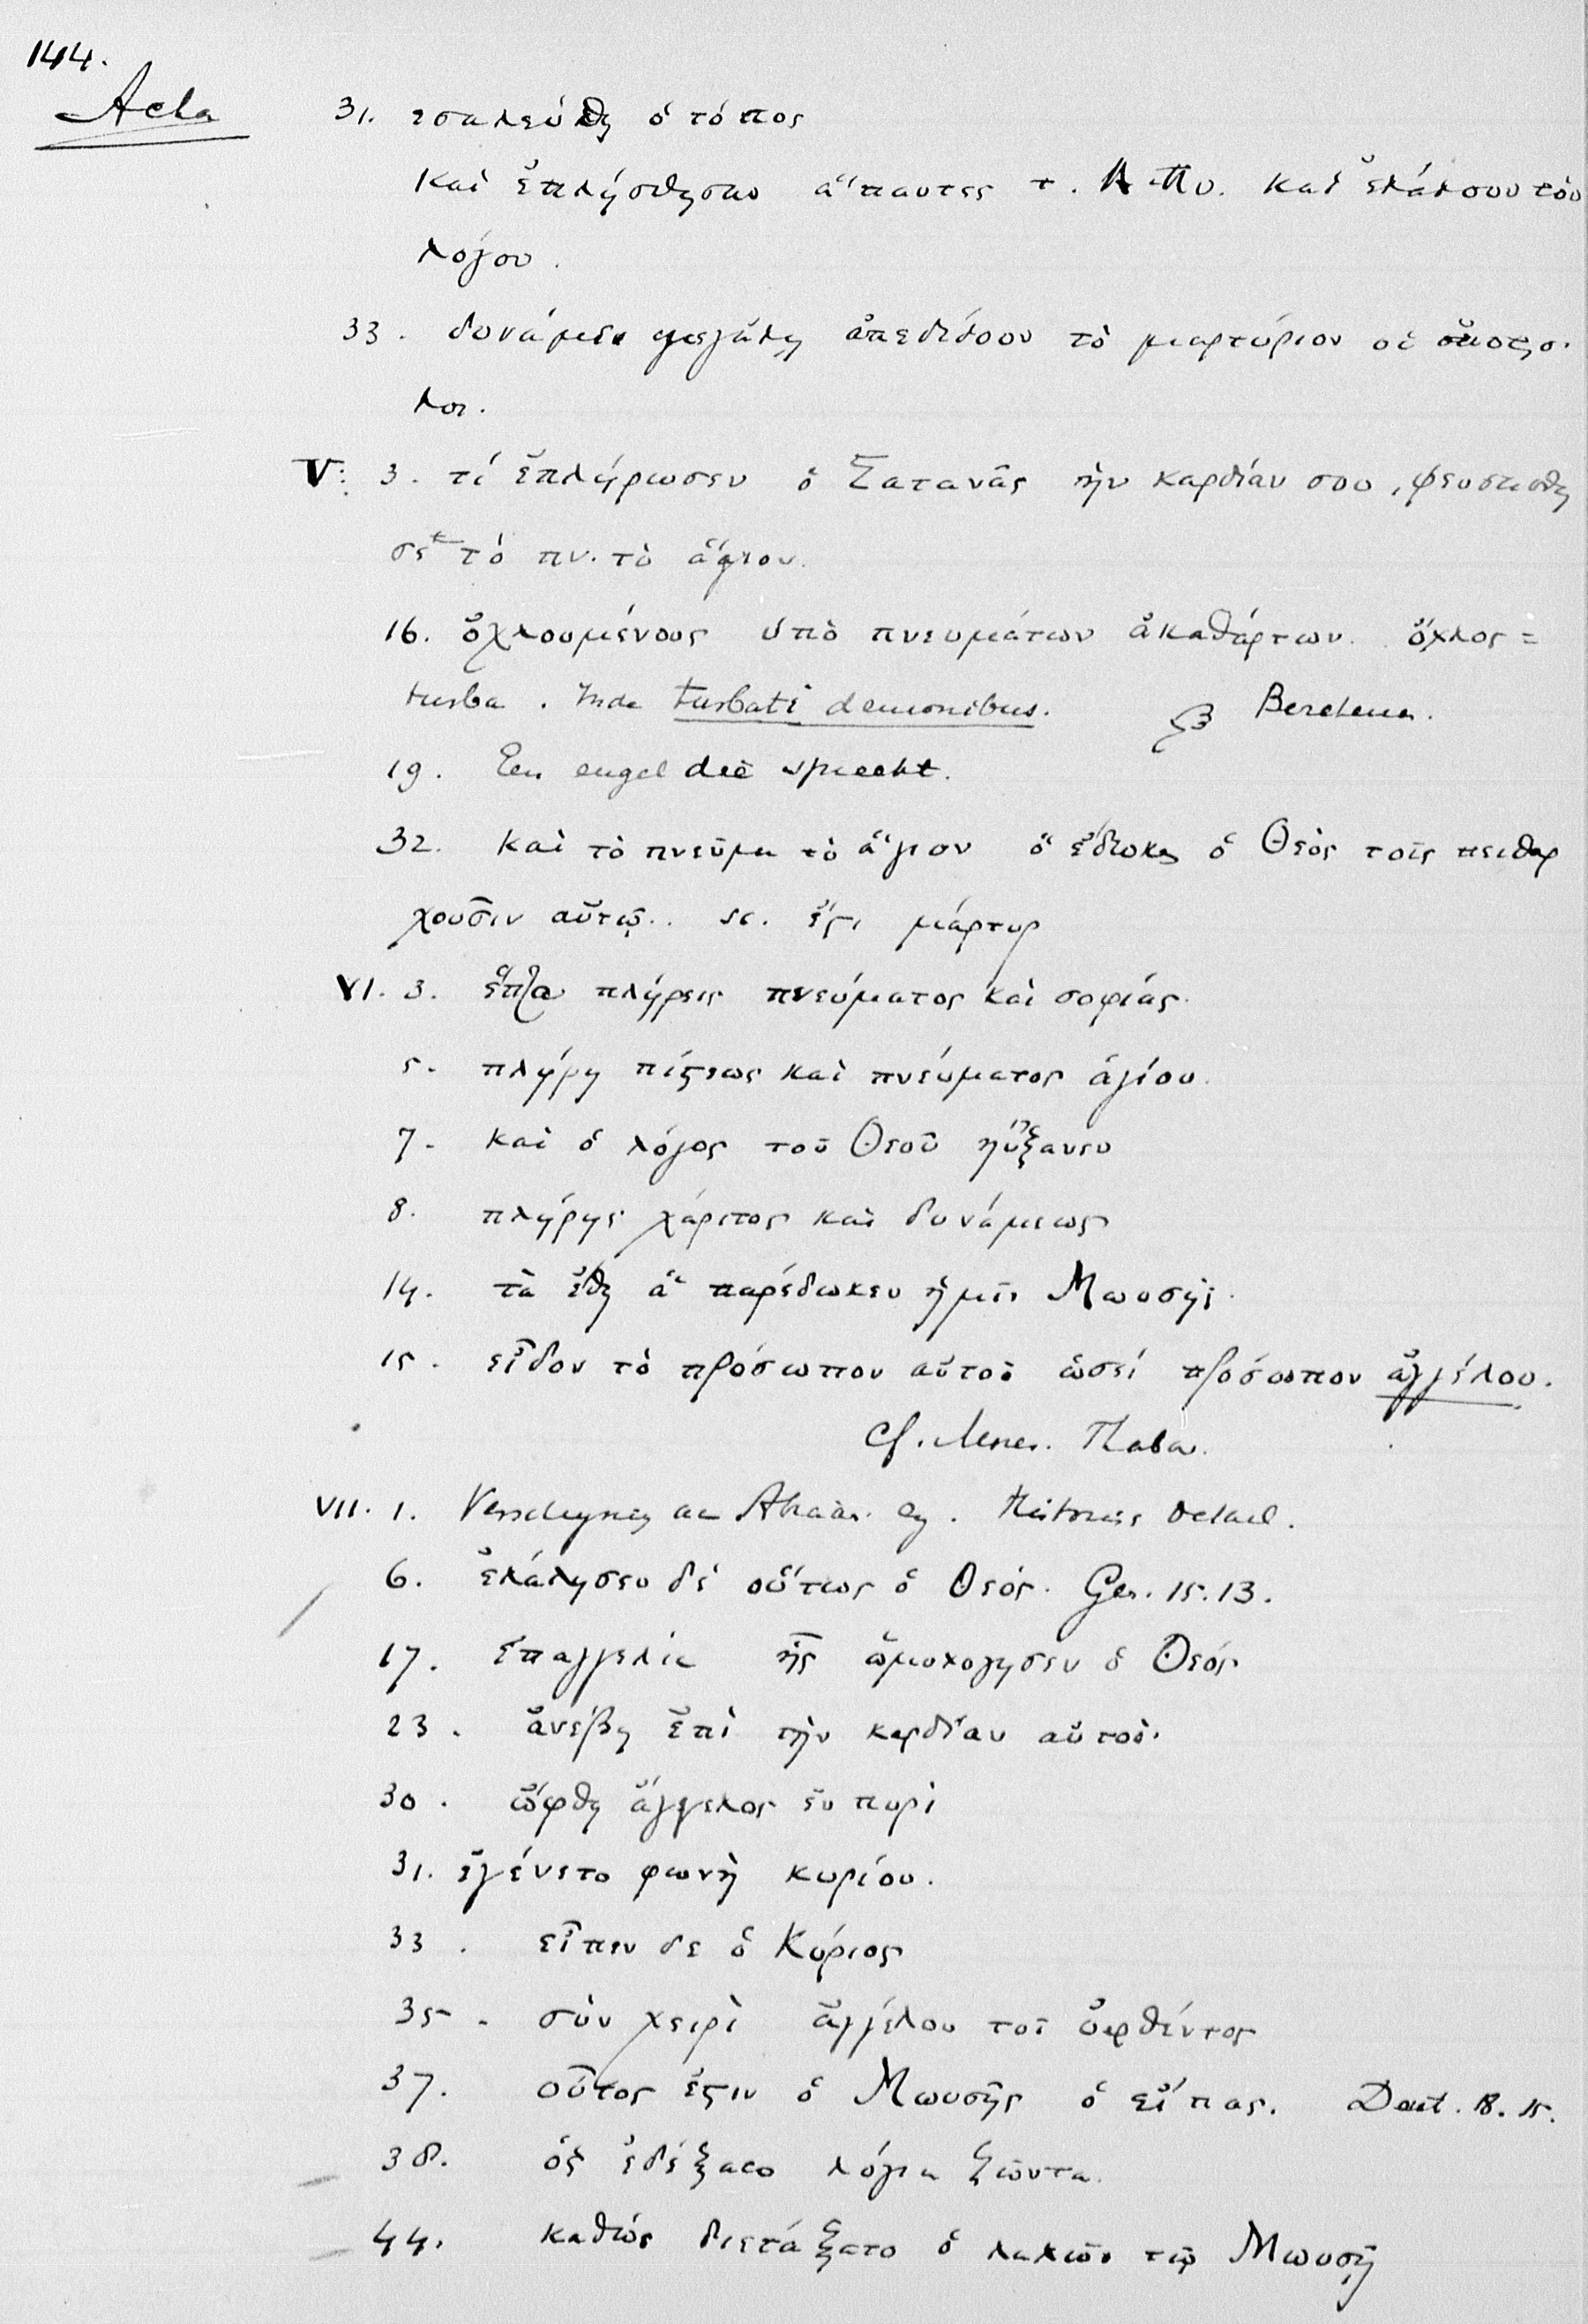 144.
Acta
31. εσαλεύθη ὁ τόπος
Καὶ ἐπλήσθησαν ἅπαντες τ. Ἁ. Πν. Καὶ ἐλάλουν τὸν
λόγον.
33. δυνάμει μεγάλῃ ἀπεδίδουν τὸ μαρτύριον οἱ ἀποστο
λοι.
V: 3. τί ἐπλήρωσεν ὁ Σατανᾶς τὴν καρδίαν σου, ψευσασθη
σε τὸ πν. τὸ ἅγιον.
16. ὀχλουμένους ὑπὸ πνευμάτων ἀκαθάρτων. ὄχλος =
turba. Inde turbati demonibus.
19. Een engel die spreekt.
32. Καὶ τὸ πνεῦμα τὸ ἅγιον ὃ ἔδωκεν ὁ Θεὸς τοῖς πειθαρ
χοῦσιν αὐτῷ.. sc. ἐστι μάρτυρ
VI. 3. ἑπτα πλήρεις πνεύματος καὶ σοφίας.
5. πλήρη πίστεως καὶ πνεύματος ἁγίου.
7. Καὶ ὁ λόγος τοῦ Θεοῦ ηὔξανεν
8. πλήρης χάριτος καὶ δυνάμεως
14. τὰ ἔθη ἃ παρέδωκεν ἡμῖν Μωυσῆς.
15. εἶδον τὸ πρόσωπον αὐτοῦ ὡσεὶ πρόσωπον ἀγγέλου.
Cf. Thabor.
VII. 1. Verschijning aan Abraham
6. ἐλάλησεν δὲ οὕτως ὁ Θεός. Gen. 15.13.
17. ἐπαγγελία ἧς ὡμολογησεν ὁ Θεός
23. ἀνέβη ἐπὶ τὴν καρδίαν αὐτοῦ.
30. ὤφθη ἄγγελος ἐν πυρὶ
31. ἐγένετο φωνὴ κυρίου.
33. εἶπεν δε ὁ Κύριος
35. σὺν χειρὶ ἀγγέλου τοῦ ὀφθέντος
37. οὗτος ἐστιν ὁ Μωυσῆς ὁ εἴπας. Deut. 18. 15.
38. ὃς ἐδέξατο λόγια ζῶντα.
44. Καθὼς διετάξατο ὁ λαλῶν τῷ Μωυσῇ